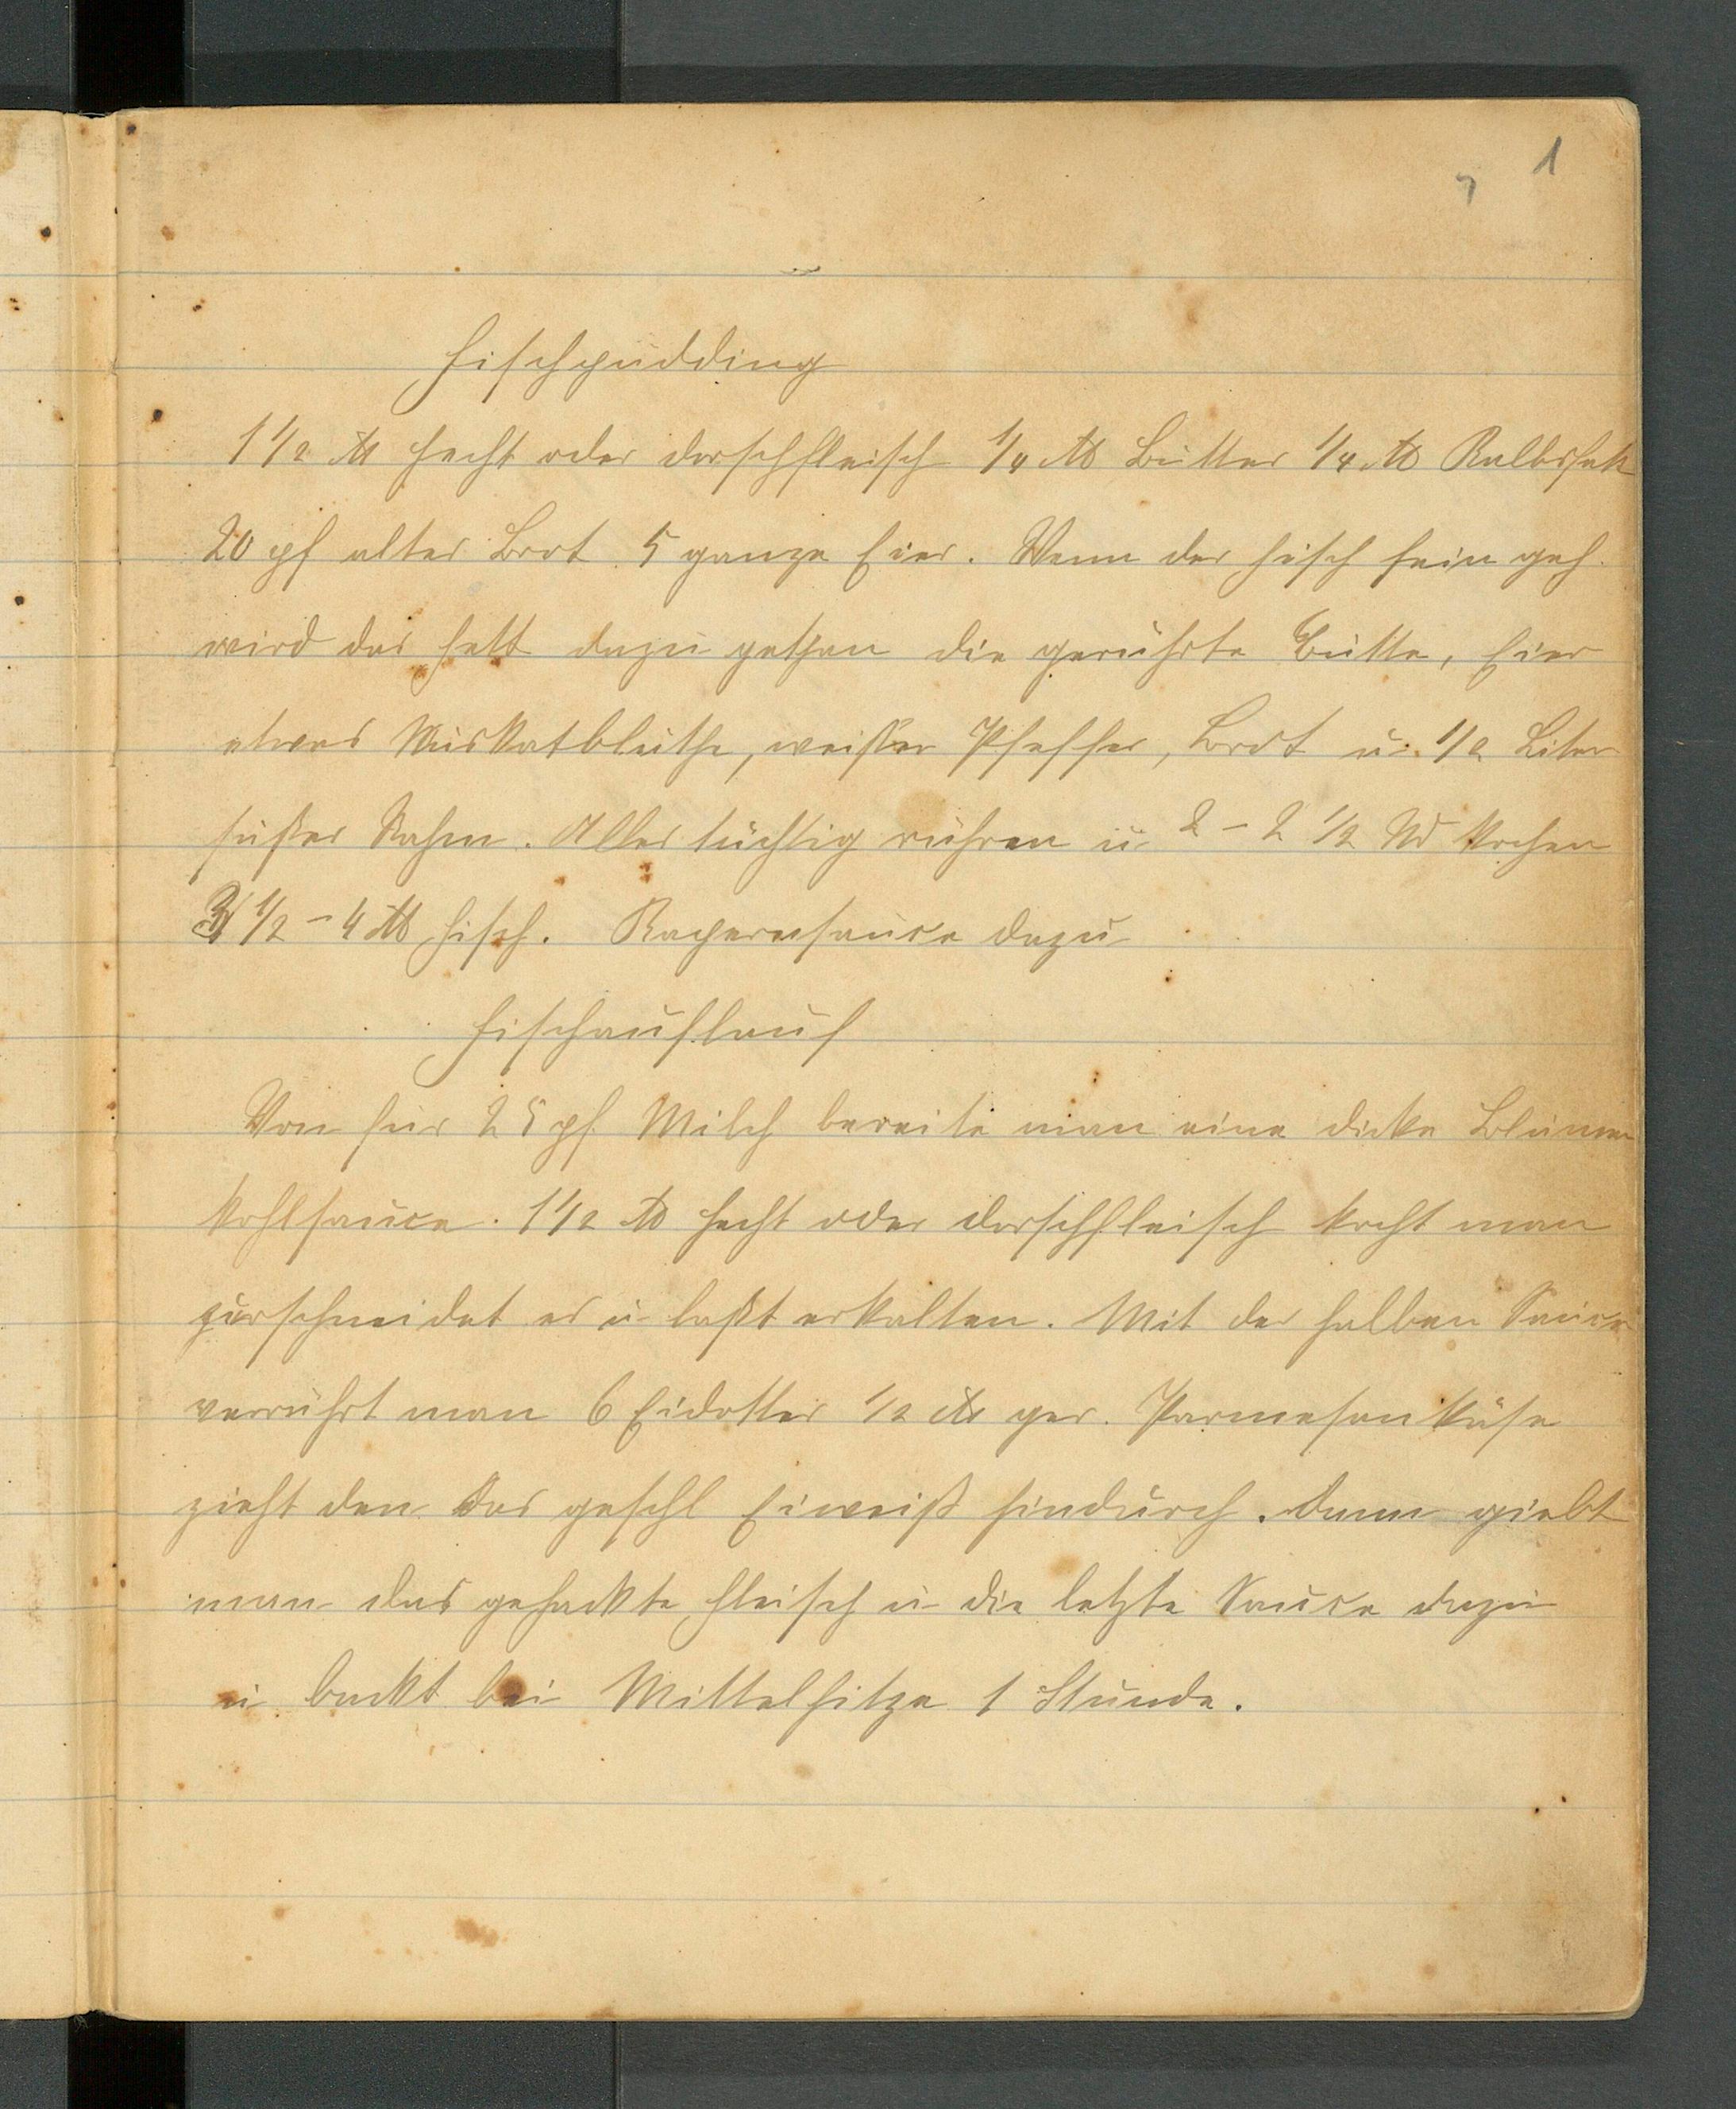 1
Fischpudding
1 1/2 ℔ Hecht oder Dorschfleisch 1/4 ℔ Butter 1/4 ℔ Kalbsfett
20 pf altes Brot 5 ganze Eier. Wenn der Fisch fein geh.
wird das Fett dazu gethan die gerührte Butte, Eier
etwas Muskatblüthe, weißer Pfeffer, Brot u. 1/2 Liter
süßer Rahm. Alles tüchtig rühren u 2 - 2 1/2 Std kochen
3 1/2 - 4 ℔ Fisch. Kapernsauce dazu
Fischauflauf
Von für 25 pf Milch bereite man eine dicke Blumen
kohlsauce. 1 1/2 ℔ Hecht oder Dorschfleisch kocht man
zerschneidet es u laßt erkalten. Mit der halben Sauce
verrührt man 6 Eidotter 1/2 ℔ ger. Parmesankäse
zieht den das geschl Eiweiß hindurch. Dann giebt
man das gehackte Fleisch u die letzte Sauce dazu
u backt bei Mittelhitze 1 Stunde.